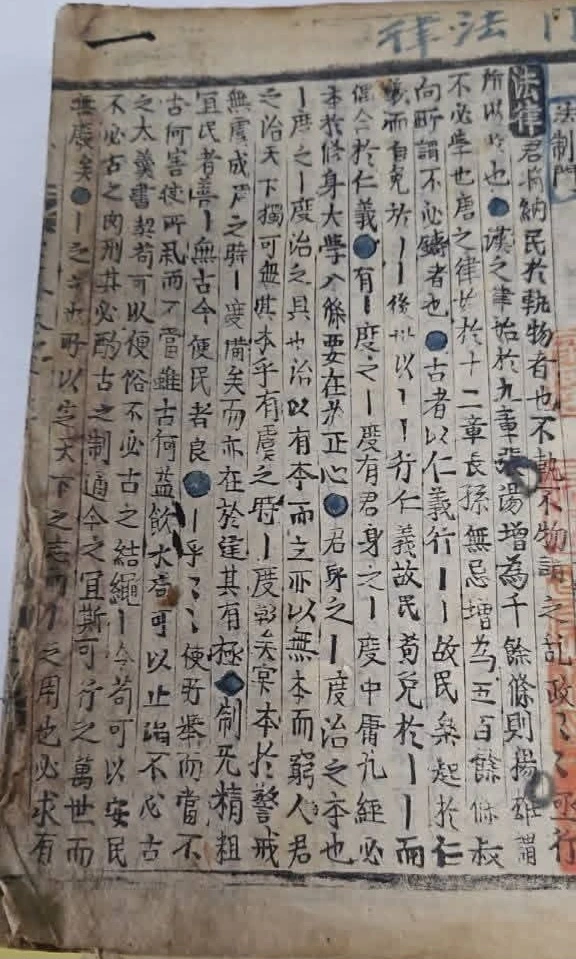 法律門
一
法制門
法律 君將納民於軌物者也不軌不物謂之亂政〻〻亟行
所以敗也 漢之律始於九章張湯增為千餘條則揚雄謂
不必學也唐之律始於十二章長孫無忌增為五百餘條叔
向所謂不必鑄者也 古者以仁義行丨丨故民樂起於仁
義而自免於丨丨後世以丨丨行仁義故民苟免於丨丨而
偶合於仁義 有丨度之丨度有君身之丨度中庸九經必
本於修身大學八條要在於正心 君身之丨度治之本也
丨度之丨度治之具也治以有本而立亦以無本而窮人君
之治天下獨可無其本乎有虞之時丨度彰矣實本於警戒
無虞成周之時丨度備矣而亦在於建其有極 制無精粗
宜民者善丨無古今便民者良 丨乎〻〻便所舉而當不
古何害使所〻而不當雖古何益飲水可以止渴不必古
之大羹書契苟可以便俗不必古之結繩丨令苟可以安民
不必古之肉刑其必酌古之制適今之宜斯可行之萬世而
無虞矣 丨之〻也所以定天下之志〻之用也必求有